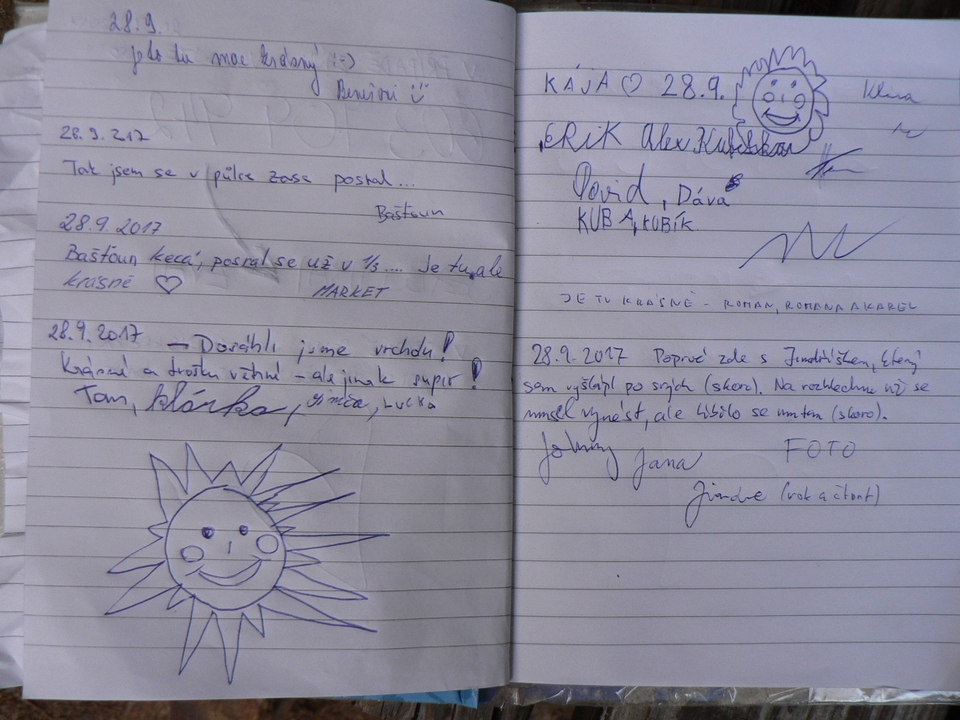 28.9.
je to tu moc krásný :-)
28.9.2017
Tak jsem se v půlce zase posral...
Baštoun
28.9.2017
Baštoun kecá, posral se už v 1/3.... Je tu ale
krásně ♡ MARKET
28.9.2017 → Dosáhli jsme vrcholu!
Krásné a trošku větrné - ale jinak super!
Tom, klárka, Simča, LUCKA
KÁJA ♡ 28.9.
ERIK Alex
David, Dáva
KUBA, KUBÍK
JE TU KRÁSNĚ - ROMAN, ROMANA A KAREL
28.9.2017 Poprvé zde s Jindříškem, který
sem vyšlápl po svých (skoro). Na rozhlednu už se
musel vynést, ale líbilo se mu tam (skoro).
Johny Jana FOTO
Jindra (rok a čtvrt)